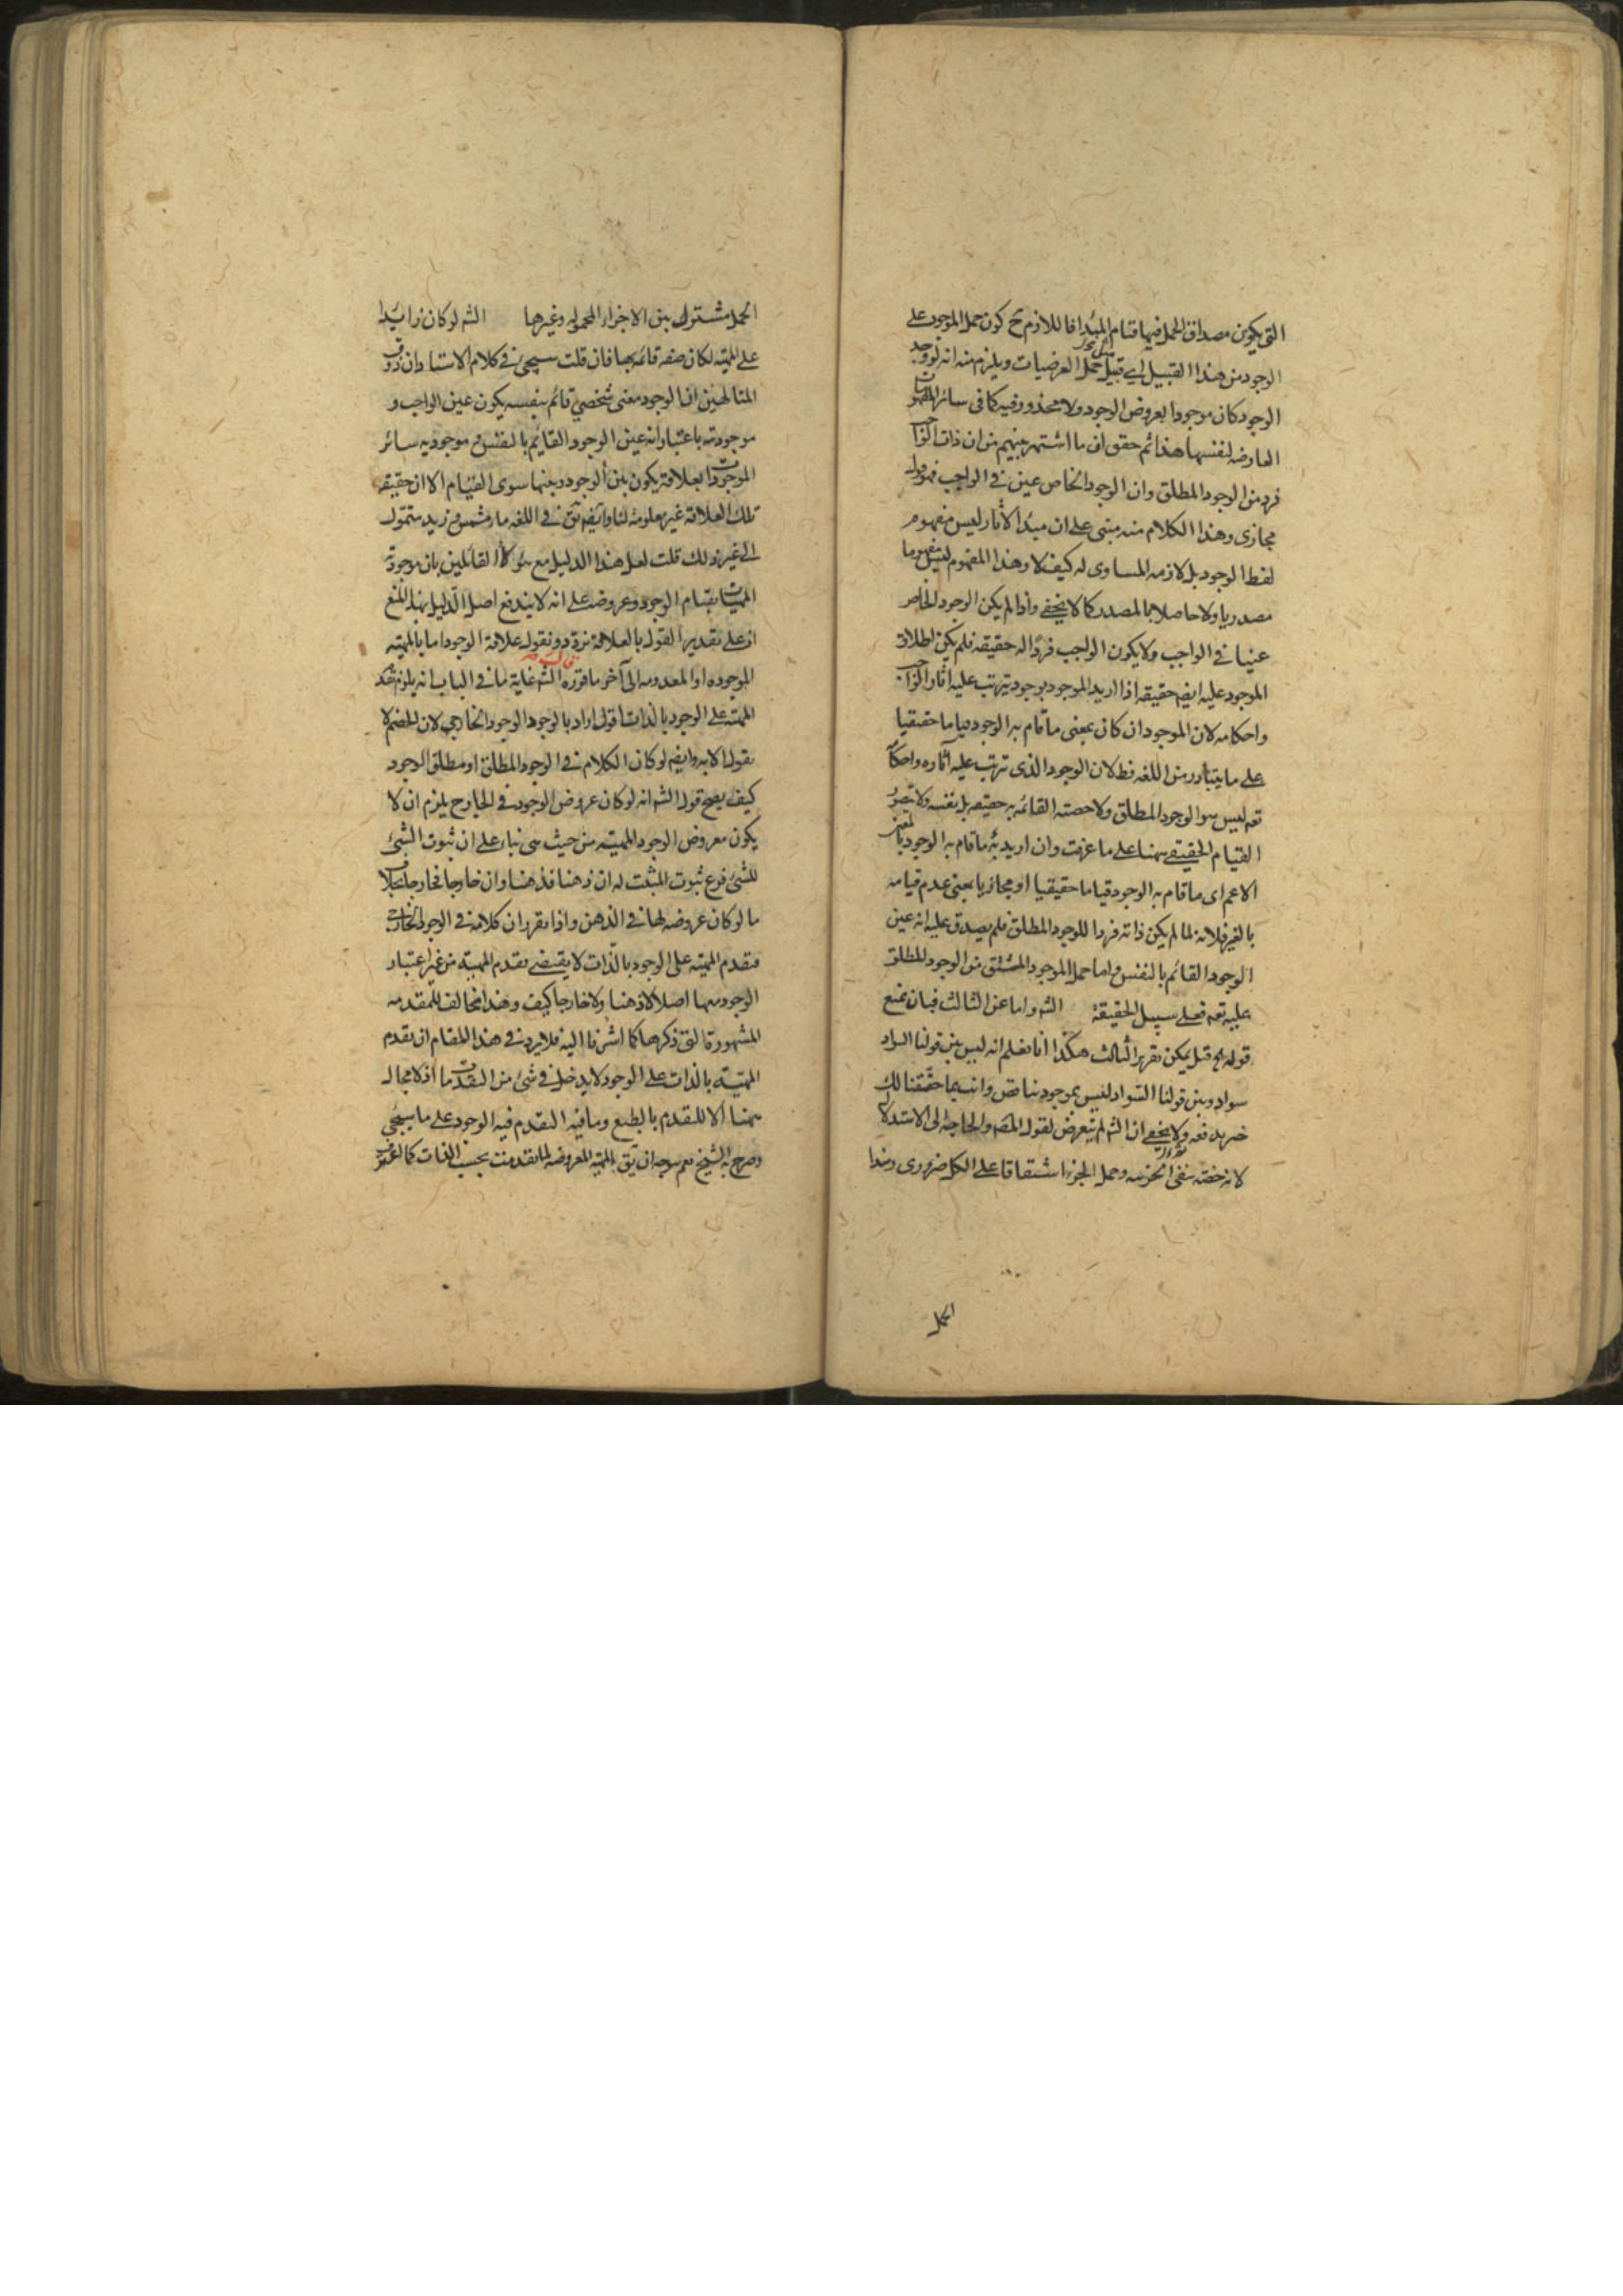 التى يكون مصداق الحمل فيها قيام المبدا فاللازم ح كون حمل الموجود على
الوجود من هذا القبيل اى قبيل حمل العرضيات ويلزم منه انه لو وجد
الوجود كان موجودا بعروض الوجود ولا محذور فيه كما فى سائر المفهومات
العارضه لنفسها هذا ثم حقق ان ما اشتهر بينهم من ان ذات الواجب
فرد من الوجود المطلق وان الوجود الخاص عين فى الواجب فهو قول
مجازى وهذا الكلام منه مبنى على ان مبدا الاثار ليس مفهوم
لفظ الوجود بل لازمه المساوى له كيف لا وهذا المفهوم ليس مفهوما
مصدريا ولا حاصلا بالمصدر كما لا يخفى واذا لم يكن الوجود الخاص
عينا فى الواجب ولا يكون الواجب فردا له حقيقه فلم يكن اطلاق
الموجود عليه ايضا حقيقه اذا اريد الموجود بوجود يترتب عليه اثار الواجب
واحكامه لان الموجود ان كان بمعنى ما قام به الوجود قياما حقيقيا
على ما يتبادر من اللغه فظ لان الوجود الذى ترتب عليه آثاره واحكامه
تعه ليس هو الوجود المطلق ولا حصته القائمه به حقيقه بل نفسه ولا يتصور
القيام الحقيقى ههنا على ما عرفت وان اريد به ما قام به الوجود بالمعنى
الاعم اى ما قام به الوجود قياما حقيقيا او مجازيا بمعنى عدم قيامه
بالغير فلانه لما لم يكن ذاته فردا للوجود المطلق فلم يصدق عليه انه عين
الوجود القائم بالنفس واما حمل الموجود المشتق من الوجود المطلق
عليه تعه فعلى سبيل الحقيقة الشه واما عن الثالث فبان نمنع
قوله الخ قيل يمكن تقرير الثالث هكذا انا نعلم انه ليس بين قولنا السواد
سواد وبين قولنا السواد ليس بموجود تناقض وانت بما حققنا لك
خبير بدفعه ولا يخفى ان الشه لم يتعرض لقول المص والحاجه الى الاستدلال
لانه خصه بنفى الجزئيه وحمل الجزء اشتقاقا على الكل ضرورى وهذا
الحمل
الحمل مشترك بين الاجزاء المحموله وغيرها الشه لو كان زائدا
على المهيه لكان صفه قائمه بها فان قلت سيجئ فى كلام الاستاد ان ذوق
المتالهين ان الوجود معنى شخصى قائم بنفسه يكون عين الواجب و
موجوديته باعتبار انه عين الوجود القايم بالنفس وموجوديه سائر
الموجودات بعلاقة يكون بين الوجود وبينها سوى القيام الا ان حقيقه
تلك العلاقة غير معلومة لنا وانهم يق فى اللغه ماء مشمس وزيد متمول
الى غير ذلك قلت لعل هذا الدليل مع هؤلاء القائلين بان موجودية
المهيات بقيام الوجود وعروضه على انه لا يندفع اصل الدليل بهذا المنع
اذ على تقدير القول بالعلاقة نردد ونقول علاقة الوجود اما بالمهيه
الموجوده او المعدومه الى آخر ما قرره قال الشه غاية ما فى الباب انه يلزم تقدم
المهيه على الوجود بالذات اقول اراد بالوجود الوجود الخارجى لان الخصم لا
يقول الا به وايضا لو كان الكلام فى الوجود المطلق او مطلق الوجود
كيف يصح قول الشه انه لو كان عروض الوجود فى الخارج يلزم ان لا
يكون معروض الوجود المهيه من حيث هى بناء على ان ثبوت الشئ
للشئ فرع ثبوت المثبت له ان ذهنا فذهنا وان خارجا فخارجا بخلاف
ما لو كان عروضه لها فى الذهن واذا تقرر ان كلامه فى الوجود الخارجى
فتقدم المهيه على الوجود بالذات لا يقتضى تقدم المهيه من غير اعتبار
الوجود معها اصلا لا ذهنا ولا خارجا كيف وهذا مخالف للمقدمه
المشهورة التى ذكرها كما اشرنا اليه فلا يرد فى هذا المقام ان تقدم
المهيه بالذات على الوجود لا يدخل فى شئ من التقدمات اذ لا مجال
ههنا الا للتقدم بالطبع وما فيه التقدم فيه الوجود على ما سيجئ
وصرح به الشيخ نعم يوجه ان يق المهيه المعروضه لما تقدمت بحسب الذات كما اعترف